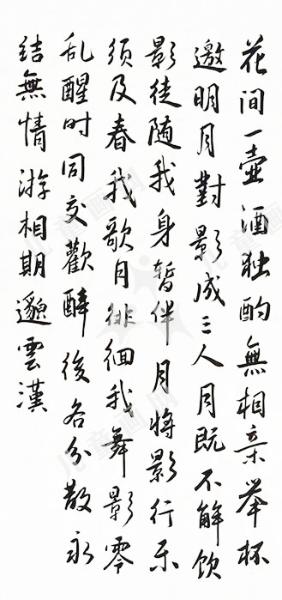 花间一壶酒独酌無相亲举杯
邀明月對影成三人月既不解饮
影徒随我身暂伴月将影行乐
须及春我歌月徘徊我舞影零
乱醒时同交歡醉後各分散永
结無情游相期邈雲漢